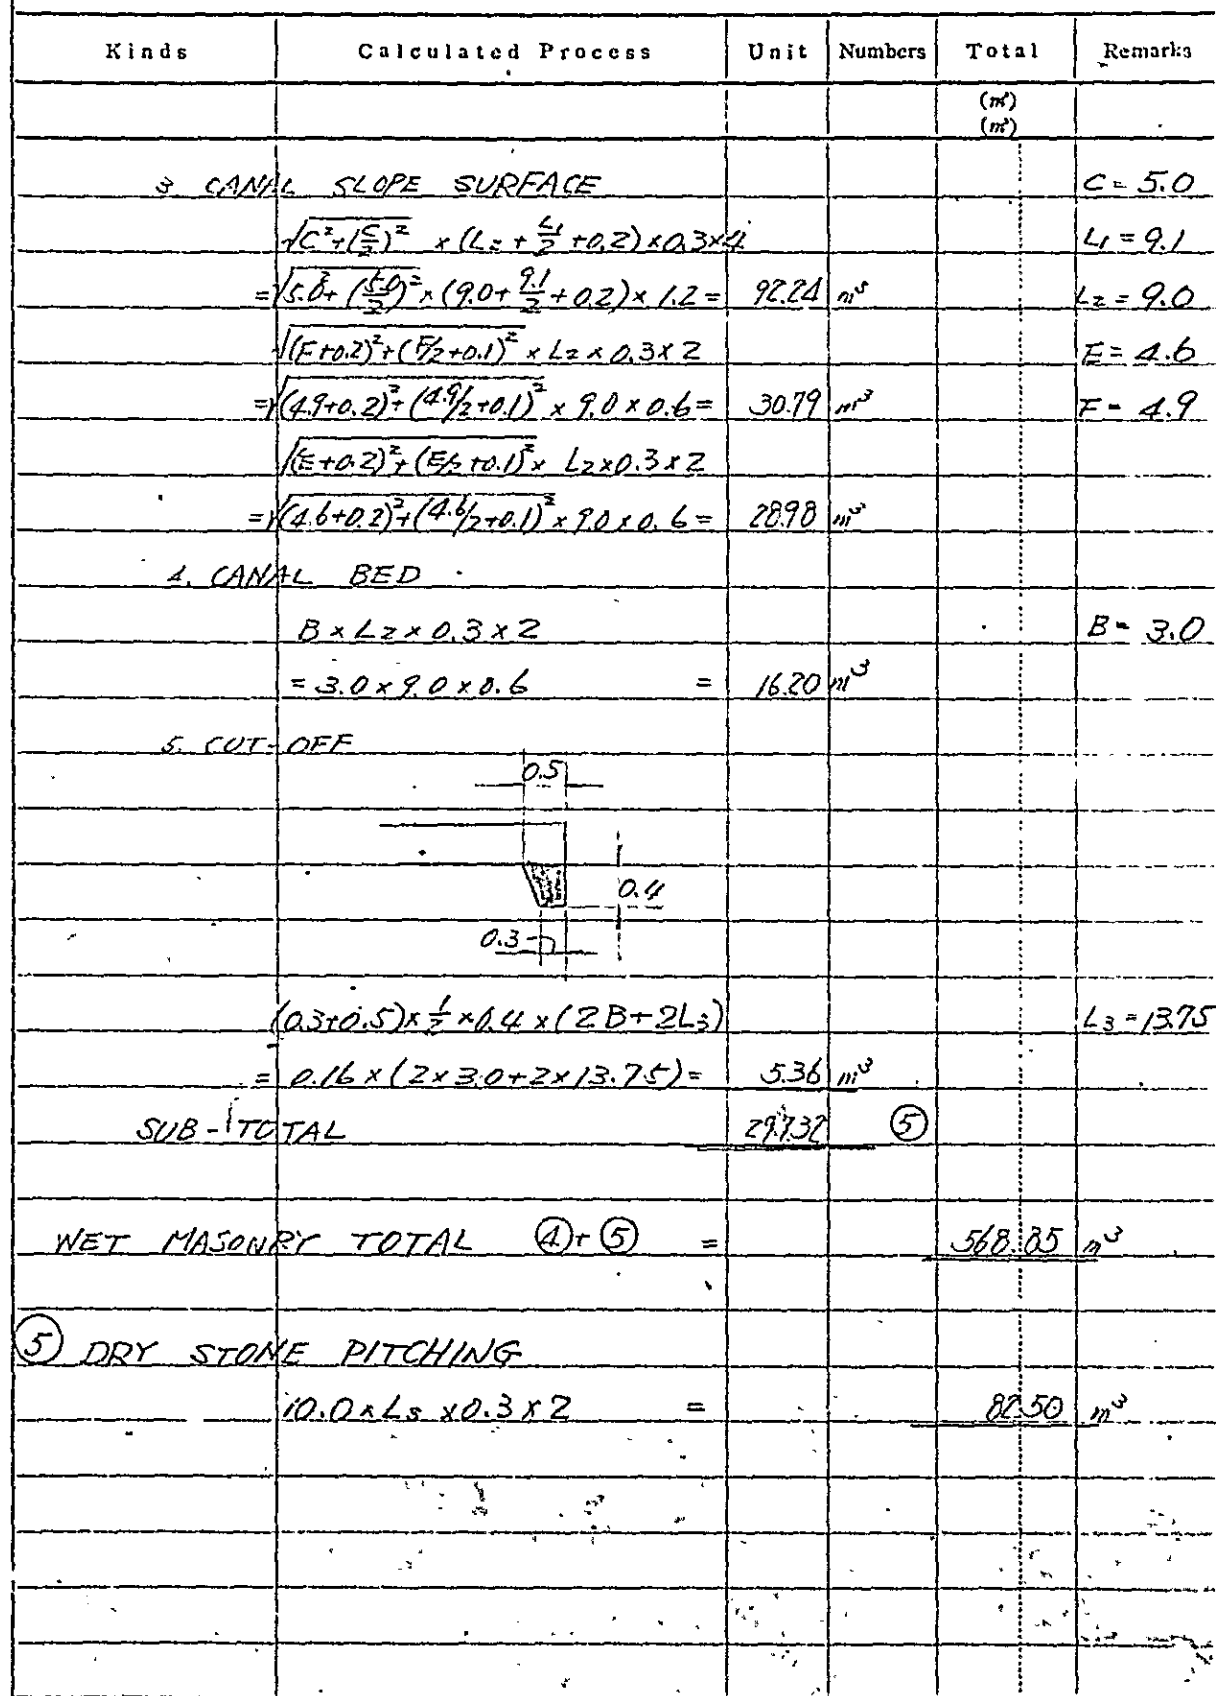 Kinds Calculated Process Unit Numbers Total Remarks
(m²)
(m³)
3. CANAL SLOPE SURFACE C = 5.0
√C²+(C/2)² × (L2 + L1/2 + 0.2) × 0.3 × 4 L1 = 9.1
= √5.0²+(5.0/2)² × (9.0 + 9.1/2 + 0.2) × 1.2 = 92.24 m³ L2 = 9.0
√(F+0.2)²+(F/2+0.1)² × L2 × 0.3 × 2 E = 4.6
= √(4.9+0.2)²+(4.9/2+0.1)² × 9.0 × 0.6 = 30.79 m³ F = 4.9
√(E+0.2)²+(E/2+0.1)² × L2 × 0.3 × 2
= √(4.6+0.2)²+(4.6/2+0.1)² × 9.0 × 0.6 = 28.98 m³
4. CANAL BED
B × L2 × 0.3 × 2 B = 3.0
= 3.0 × 9.0 × 0.6 = 16.20 m³
5. CUT-OFF
0.5
0.4
0.3
(0.3+0.5) × 1/2 × 0.4 × (2B+2L3) L3 = 13.75
= 0.16 × (2×3.0+2×13.75) = 5.36 m³
SUB-TOTAL 297.32 ⑤
WET MASONRY TOTAL ④+⑤ = 568.85 m³
⑤ DRY STONE PITCHING
10.0 × L3 × 0.3 × 2 = 82.50 m³